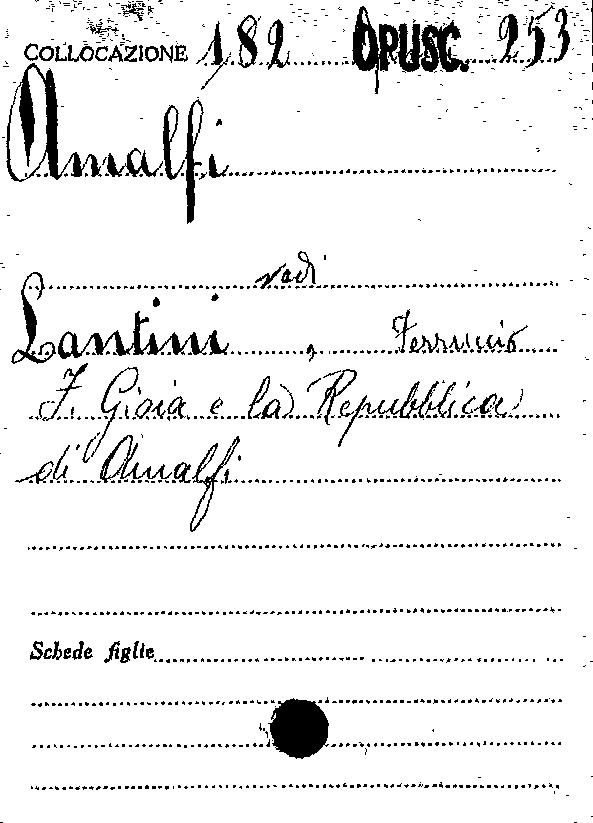 COLLOCAZIONE 182 OPUSC. 253
Amalfi
vedi
Lantini, Ferruccio
F. Gioia e la Repubblica
di Amalfi
Schede figlie